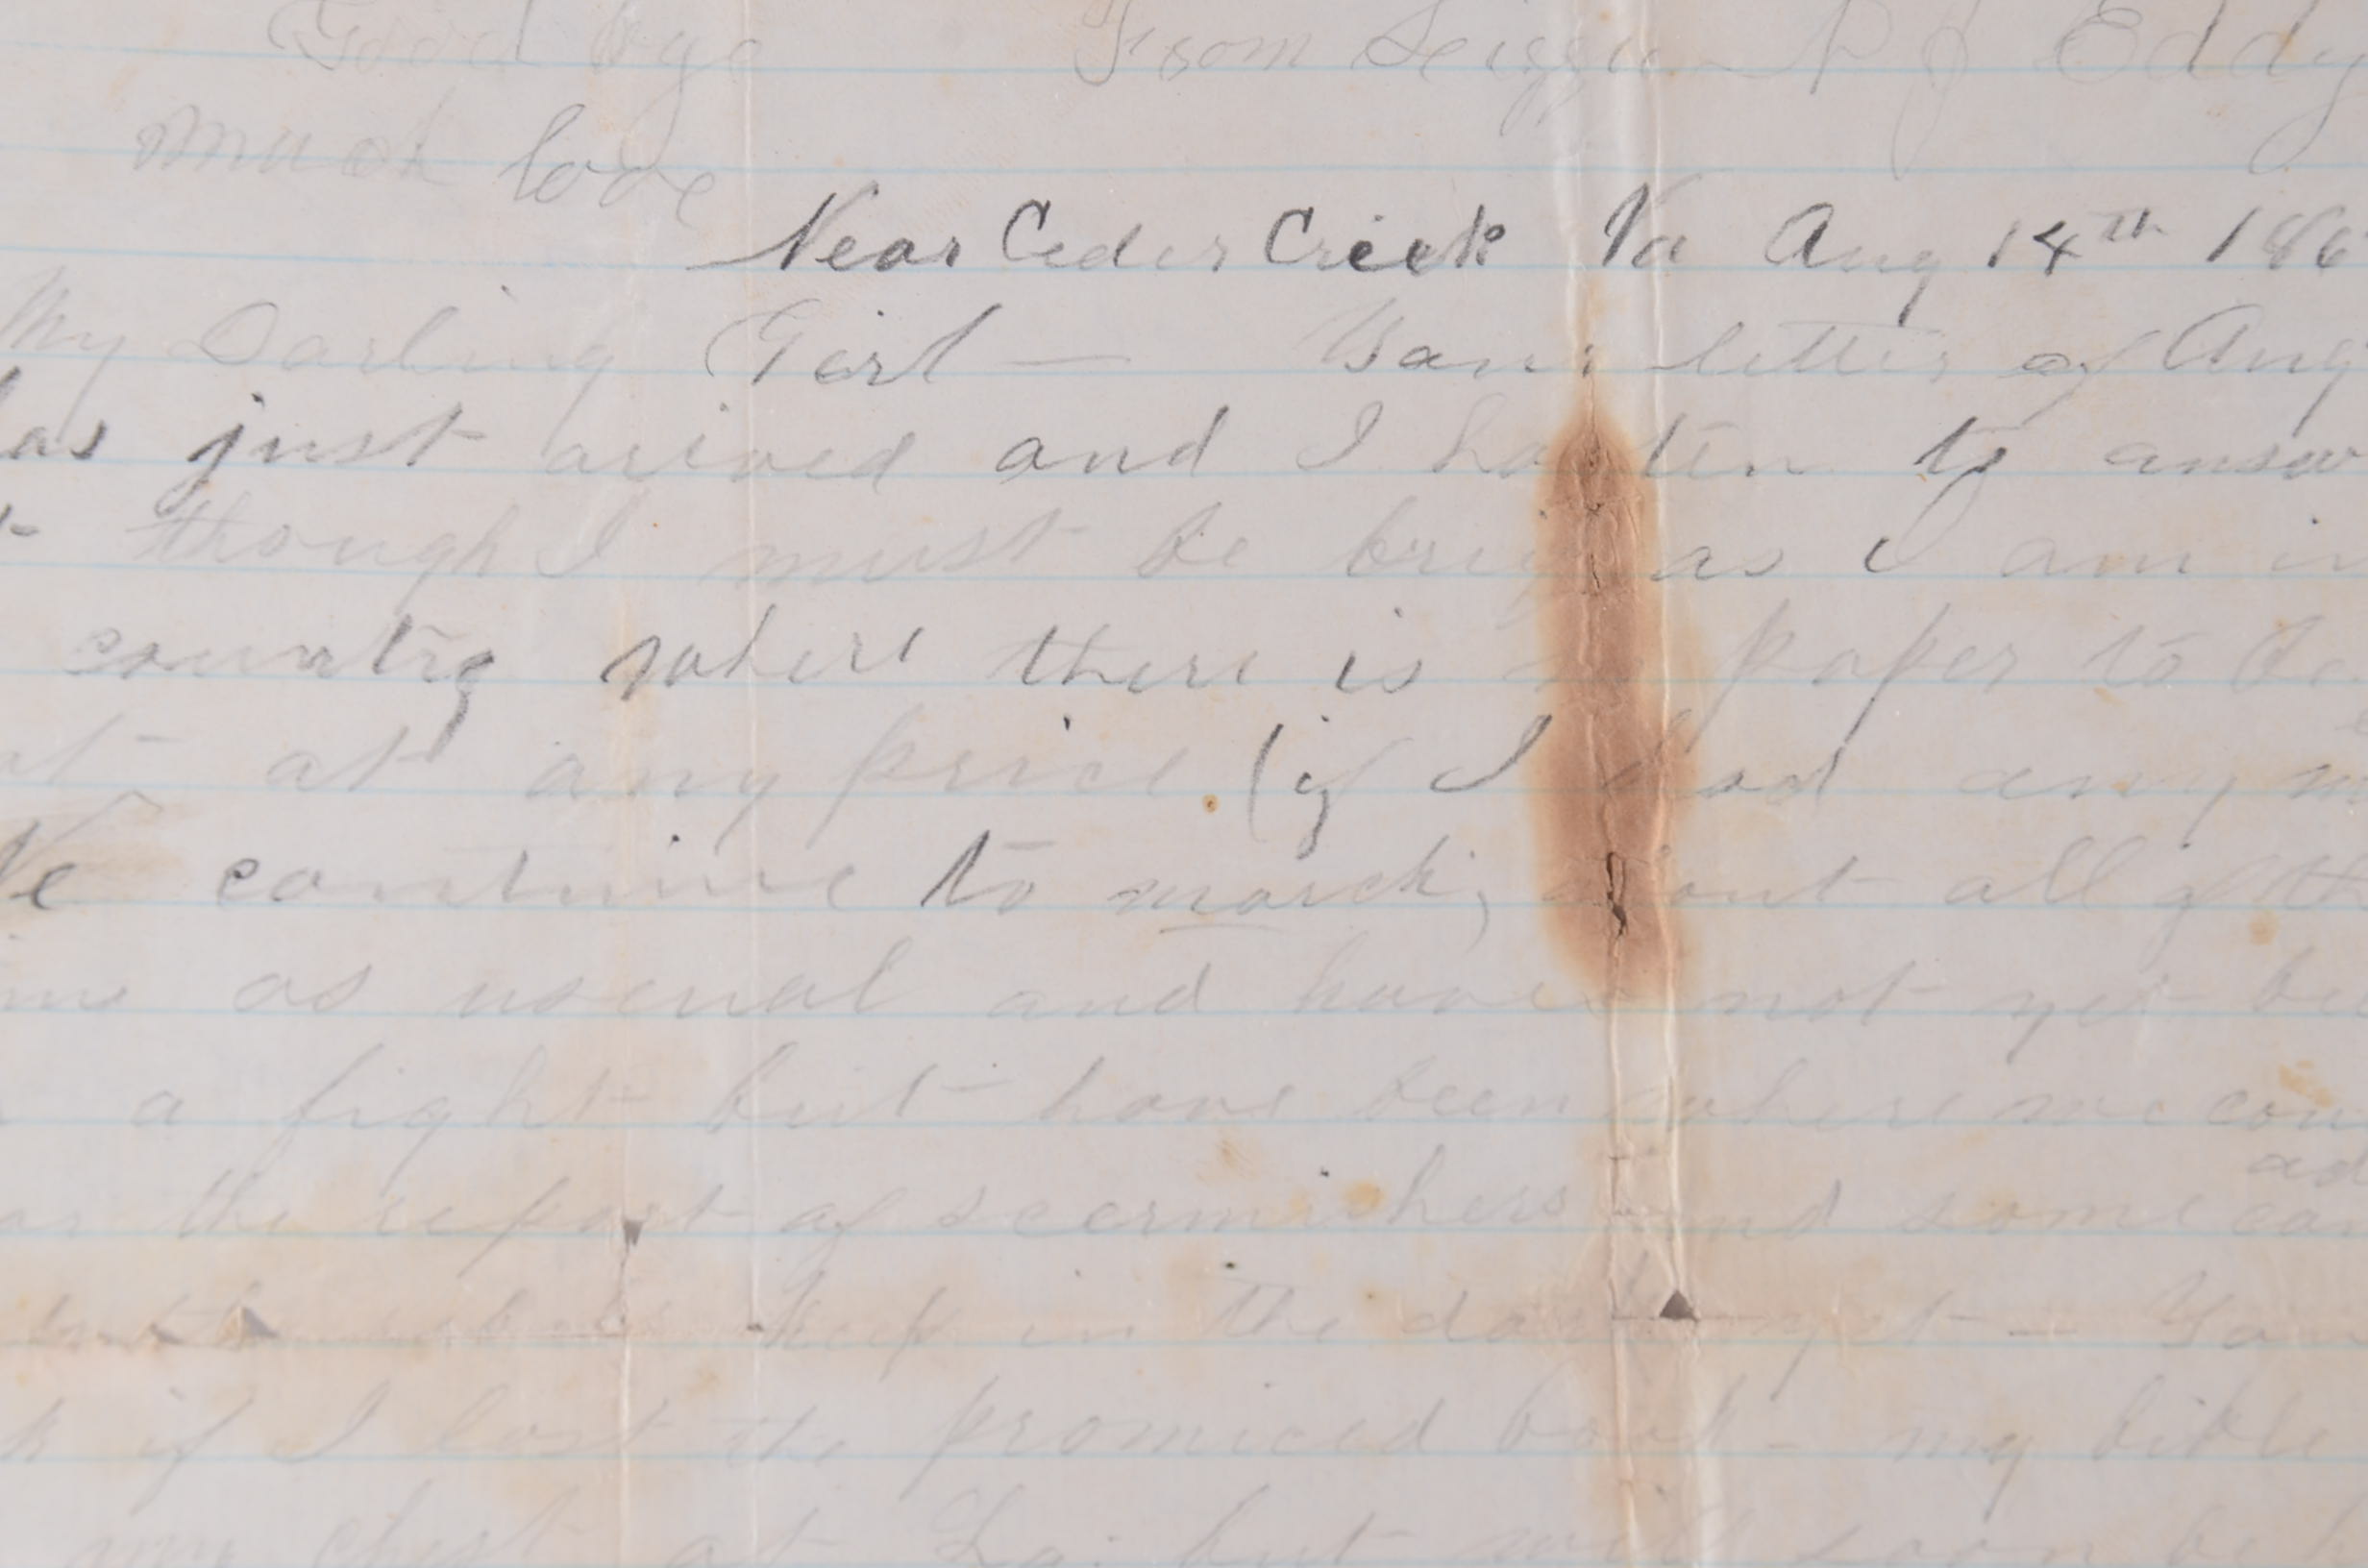 Good bye From Lizzie N J Eddy
Much love
Near Ceder Creek Va Aug 14th 186
My Darling Girl — Your letter of Aug
has just arived and I hasten to answ
t though I must be brief as I am in
country where there is no paper to be
at at any price (if I had any m
We continue to march, about all of th
ms as usual and have not yet be
a fight but have been where we cou
ar the report of scermishers and some can
ad
keep in the dark yet — You
k if I lost the promiced book - my bible
my chest at but will soon be h